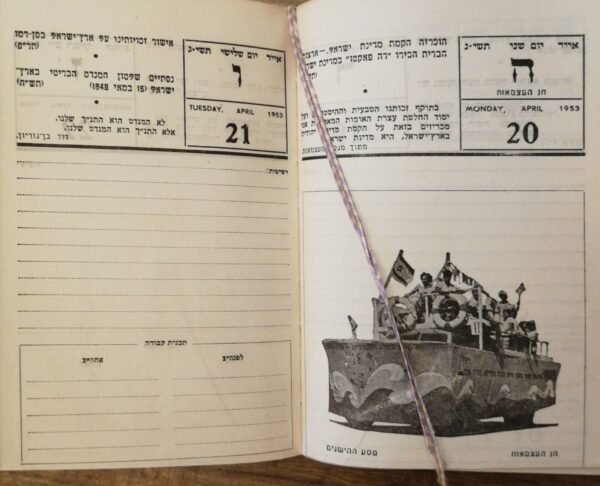 אייר יום שני תשי-ג
ה
חג העצמאות
MONDAY, APRIL 1953
20
הוכרזה הקמת מדינת ישראל. —
הברית הכירו "דה פאקטו" במדינת
בתוקף זכותנו הטבעית
יסוד החלטת עצרת האומות
מכריזים בזאת על הקמת מדינה
בארץ-ישראל, היא מדינת
מתוך העצמאות.
חג העצמאות
מסע ההישגים
אייר יום שלישי תשי-ג
ו
TUESDAY, APRIL 1953
21
אישור זכויותינו על ארץ-ישראל בסן-רמו
(תר"פ)
נסתיים שלטון המנדט הבריטי בארץ-
ישראל (15 במאי 1948) (תש"ח)
לא המנדט הוא התנ"ך שלנו,
אלא התנ"ך הוא המנדט שלנו.
דוד בן-גוריון.
רשימות:
תכנית עבודה
לפנה"צ אחה"צ